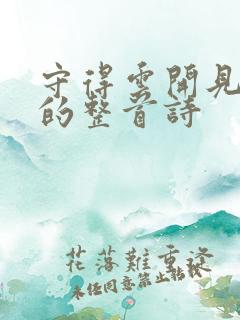 守得雲開見
的整首詩
花落難重發
未经同意禁止转载